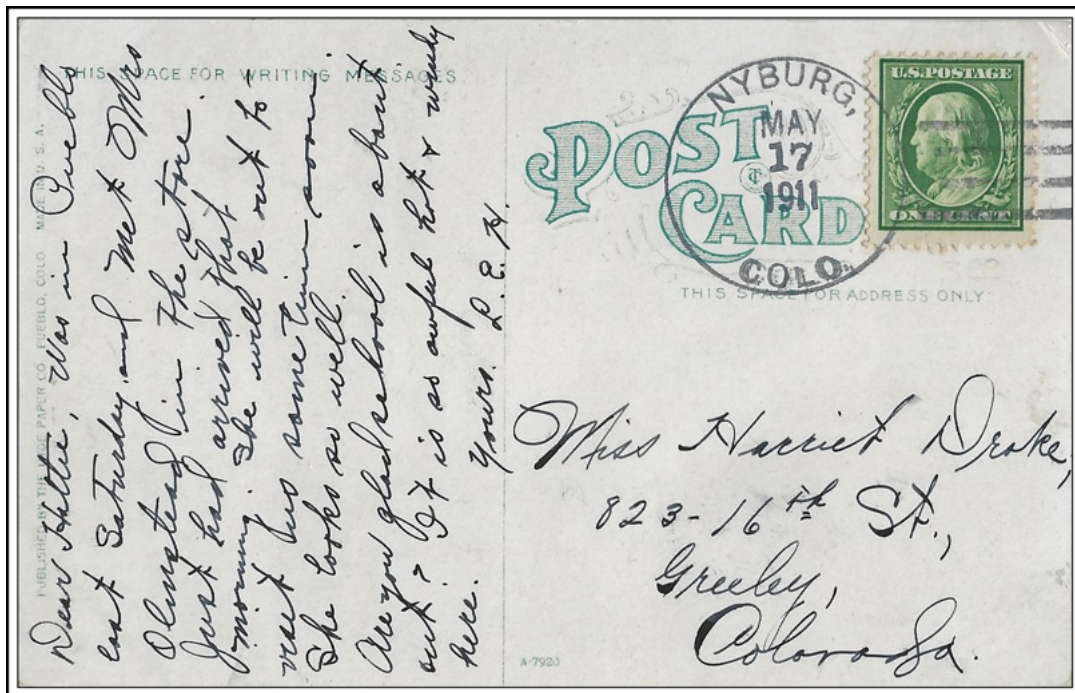 THIS SPACE FOR WRITING MESSAGES
PUBLISHED BY THE PAPER CO. PUEBLO, COLO MADE IN U. S. A.
Dear Hattie, Was in Pueblo
last Saturday and met Mrs
Olmstead in the store.
Just had arrived that
morning. She will be out to
visit us some time soon.
She looks so well.
Are you glad school is about
out? It is so awful hot & windy
here. Yours. L. E. H.
POST
CARD
NYBURG,
MAY
17
1911
COLO.
U.S. POSTAGE
ONE CENT
THIS SPACE FOR ADDRESS ONLY
Miss Harriet Drake,
823-16th St.,
Greeley,
Colorado.
A-7920